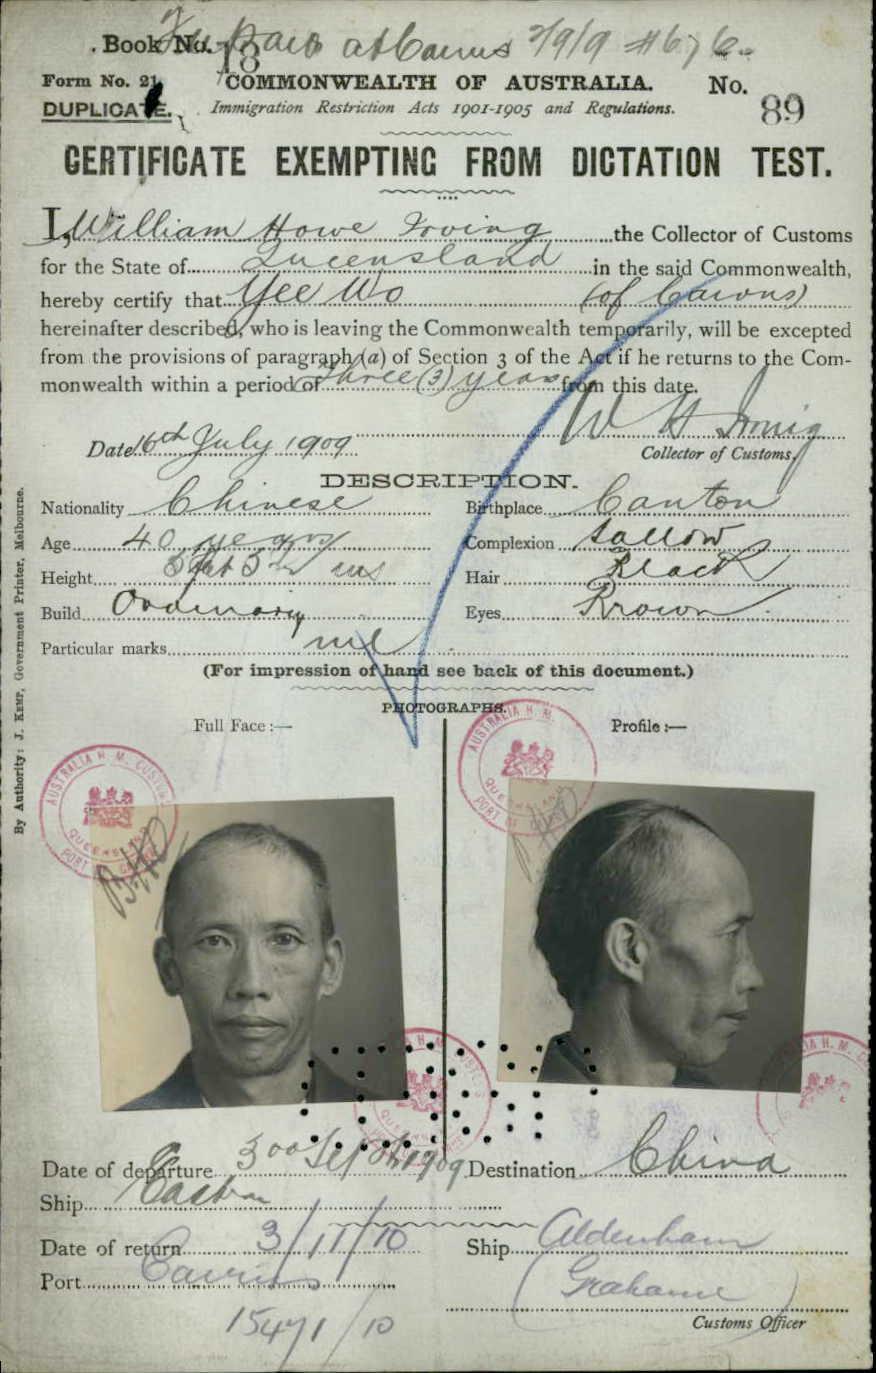 Fee paid at Cairns 2/9/9 #676
Book No. 18
Form No. 21. COMMONWEALTH OF AUSTRALIA. No. 89
DUPLICATE. Immigration Restriction Acts 1901-1905 and Regulations.
CERTIFICATE EXEMPTING FROM DICTATION TEST.
I, William Howe Irving the Collector of Customs
for the State of Queensland in the said Commonwealth,
hereby certify that Yee Wo (of Cairns)
hereinafter described, who is leaving the Commonwealth temporarily, will be excepted
from the provisions of paragraph (a) of Section 3 of the Act if he returns to the Com-
monwealth within a period of three (3) years from this date.
Date 16th July 1909 W H Irving
Collector of Customs.
DESCRIPTION.
Nationality Chinese Birthplace Canton
Age 40 years Complexion Sallow
Height 5 feet 5 ins Hair Black
Build Ordinary Eyes Brown
Particular marks nil
(For impression of hand see back of this document.)
PHOTOGRAPHS.
Full Face :— Profile :—
AUSTRALIA H. M. CUSTOMS
QUEENSLAND
PORT OF CAIRNS
AUSTRALIA H. M.
QUEENSLAND
PORT OF
Date of departure Sept 1909 Destination China
Ship Eastern
Date of return 3/11/10 Ship Aldenham
Port Cairns (Grahame)
1547/10 Customs Officer
By Authority: J. KEMP, Government Printer, Melbourne.